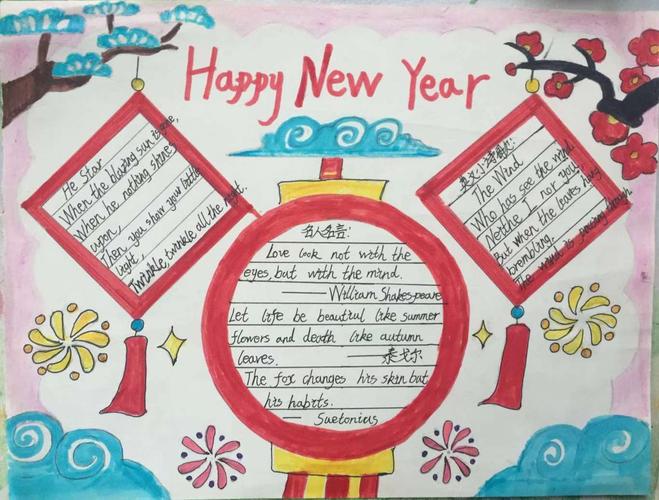 Happy New Year
He Star
When the blazing sun is gone,
When he nothing shines
upon,
Then you show your little
light
Twinkle, twinkle all the night.
名人名言:
Love look not with the
eyes, but with the mind.
—— William Shakespeare
Let life be beautiful like summer
flowers and death like autumn
leaves. —— 泰戈尔
The fox changes his skin but
his habits.
—— Suetonius
The Wind
Who has see the mind
Neithe I nor you;
But when the leaves hang
brembling,
The wind is passing through.